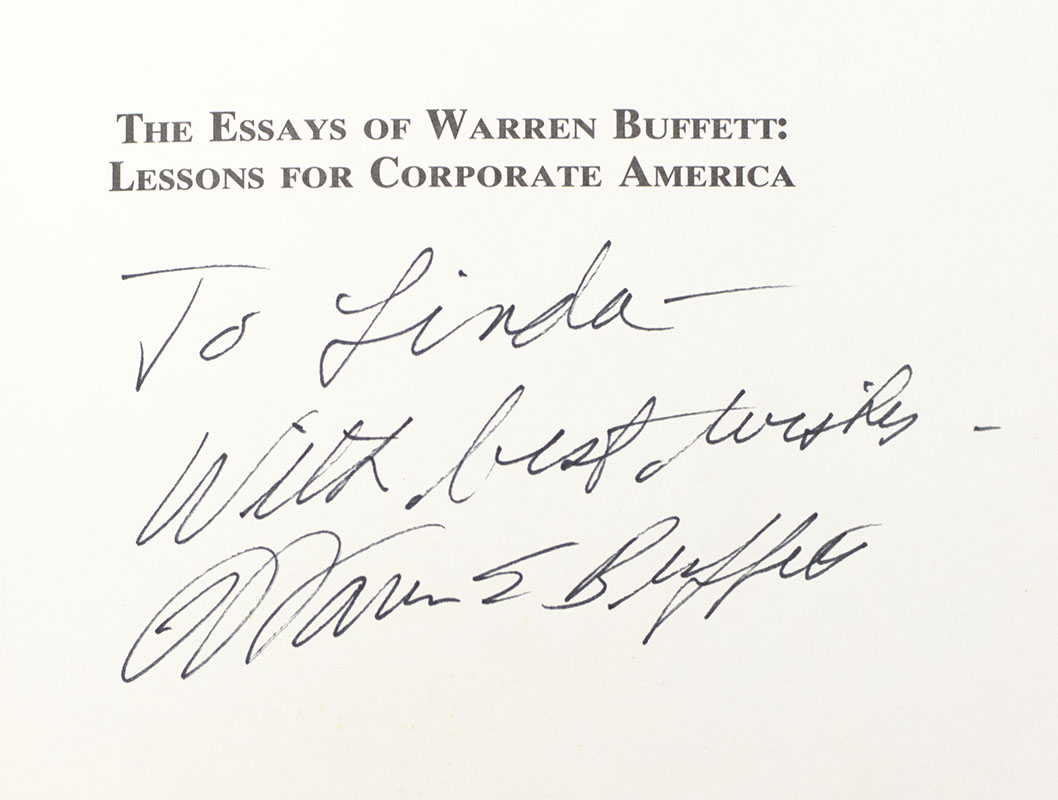 THE ESSAYS OF WARREN BUFFETT:
LESSONS FOR CORPORATE AMERICA
To Linda —
With best wishes -
Warren E Buffett